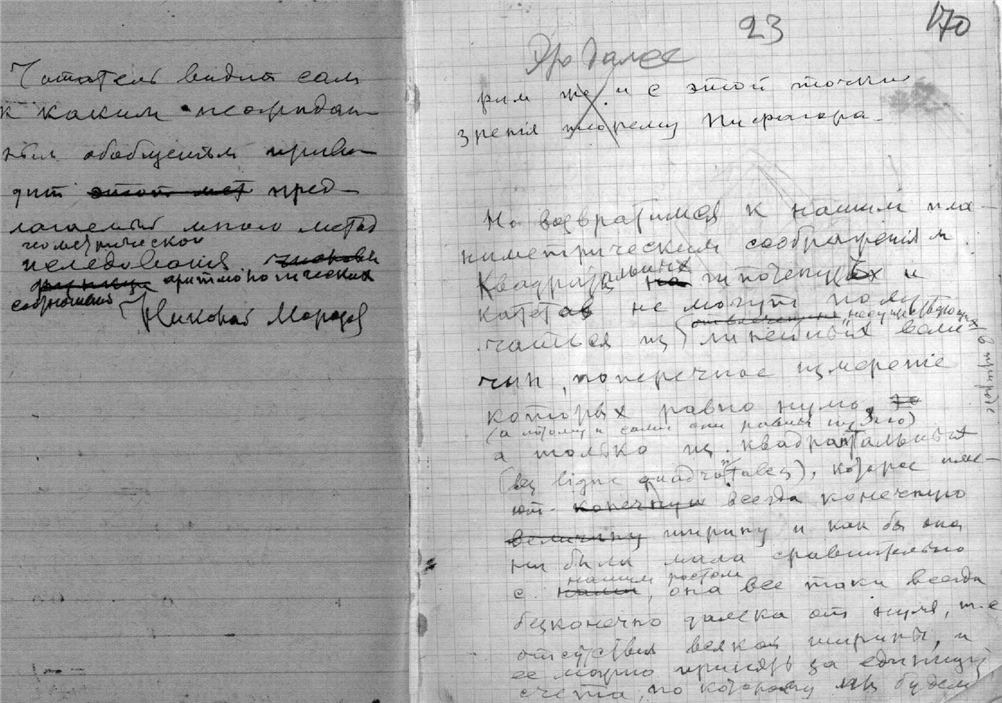 Читатель видит сам
к каким неожидан
ным обобщеньям приво-
дит этот мет пред-
лагаемый мною метод
геометрической
иследования
арифмологических
соотношений
Николай Морозов
23
170
Про далее
рим же и с этой точки
зренія теорему Пифагора.
Но возвратимся к нашим пла-
ниметрическим соображеніям.
Квадраты гипотенузных и
катетов не могут полу-
отвлеченных несуществующих
в природе
чаться из линейных вели-
чин, поперечное измереніе
которых равно нулю,
(а потому и сами они равны нулю)
а только из квадратальных
которые име-
ют конечную всегда конечную
величину ширину и как бы она
ни была мала сравнительно
нашим ростом
с нами, она все таки всегда
безконечно далека от нуля, т.е
отсутствия всякой ширины, и
ее можно принять за единицу
счета, по которому мы будем